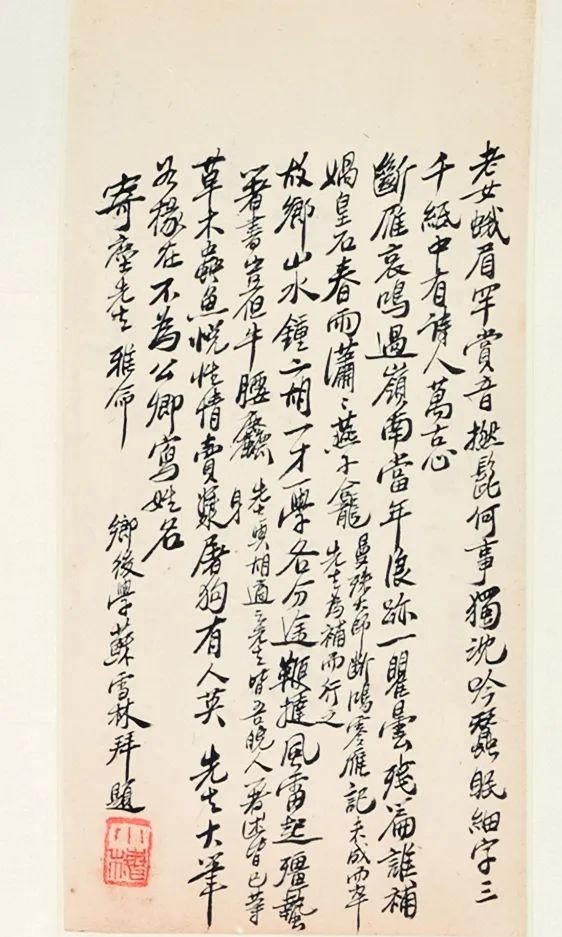 老女蛾眉罕賞音撚髭何事獨沈吟蠶眠細字三
千紙中有詩人萬古心
斷雁哀鳴過嶺南當年浪跡一瞿曇殘篇誰補
媧皇石春雨瀟〻燕子龕
曼殊大師斷鴻零雁記未成而卒
先生為補而行之
故鄉山水鍾二胡一才一學各分途鞭撻風雷起殭蟄
著書豈但牛腰麤
先生與胡適之先生皆吾皖人著述皆已等
身
草木蟲魚悅性情賣漿屠狗有人英 先生大筆
如椽在不為公卿寫姓名
寄塵先生 雅命
鄉後學蘇雪林拜題